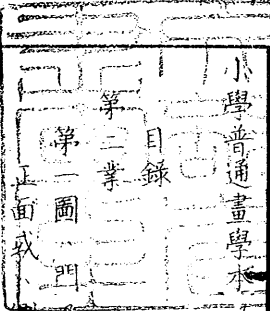 小學普通畫學本
目錄
第二業
第一圖 門
正面或